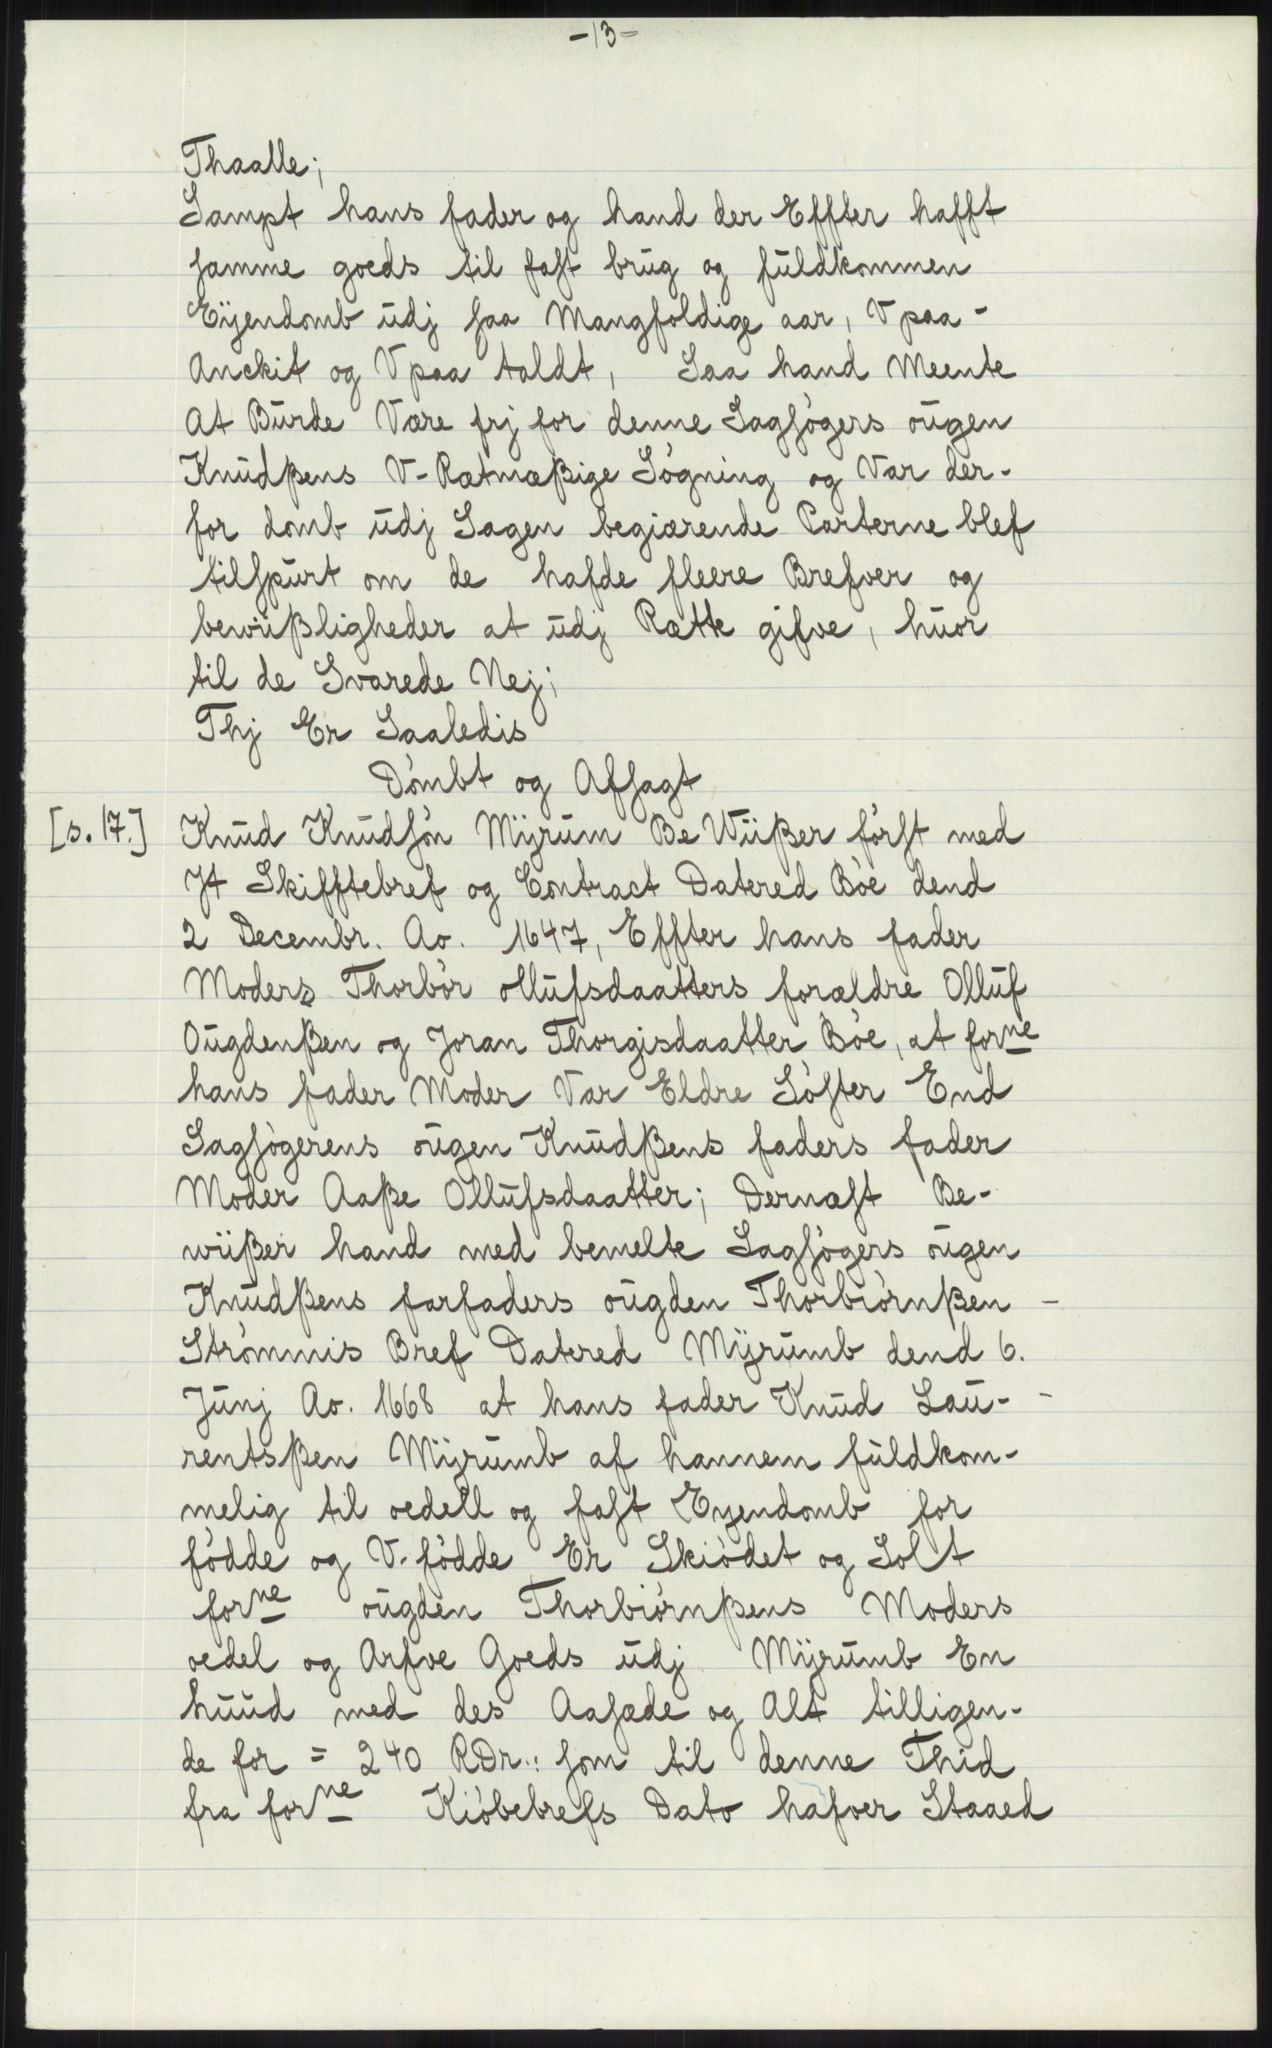 -13-
Thaalle;
Sampt hans fader og hand der Effter hafft
samme goeds til fast brug og fuldkommen
Eÿendomb udj saa Mangfoldige aar, Vpaa-
Anckit og Vpaa taldt, Saa hand Meente
At Burde Være frj for denne Sagsøgers ougen
Knudßens V-Rætmæßige Søgning og Var der-
for domb udj Sagen begiærende Parterne blef
tilspurt om de hafde fleere Brefver og
bewiißligheder at udj Rætte gifve, huor
til de Svarede Nej;
Thj Er Saaledis
Dømbt og Afsagt
[s. 17.] Knud Knudsøn Mÿrum BeWiißer først med
Jt Skifftebref og Contract Datered Bøe dend
2 Decembr. Ao. 1647, Effter hans fader
Moders Thorbør ollufsdaatters forældre Olluf
Ougdenßen og Joran Thorgisdaatter Bøe, at forne
hans fader Moder Var Eldre Søster End
Sagsøgerens ougen Knudßens faders fader
Moder Aaße Ollufsdaatter; Dernæst Be-
wiißer hand med bemelte Sagsøgers ougen
Knudßens farfaders ougden Thorbiørnßen -
Strømmis Bref Datered Mÿrumb dend 6.
Junj Ao. 1668 at hans fader Knud Lau- -
rentsßen Mÿrumb af hannem fuldkom-
melig til oedell og fast Eyendomb for
fødde og V. fødde Er Skiødet og Solt
forne ougden Thorbiørnßens Moders
oedel og Arfve Goeds udj Mÿrumb En
huud med des Aasæde og Alt tilligen-
de for = 240 RDr.: som til denne Thid
fra forne Kiøbebrefs Dato hafver Staaed